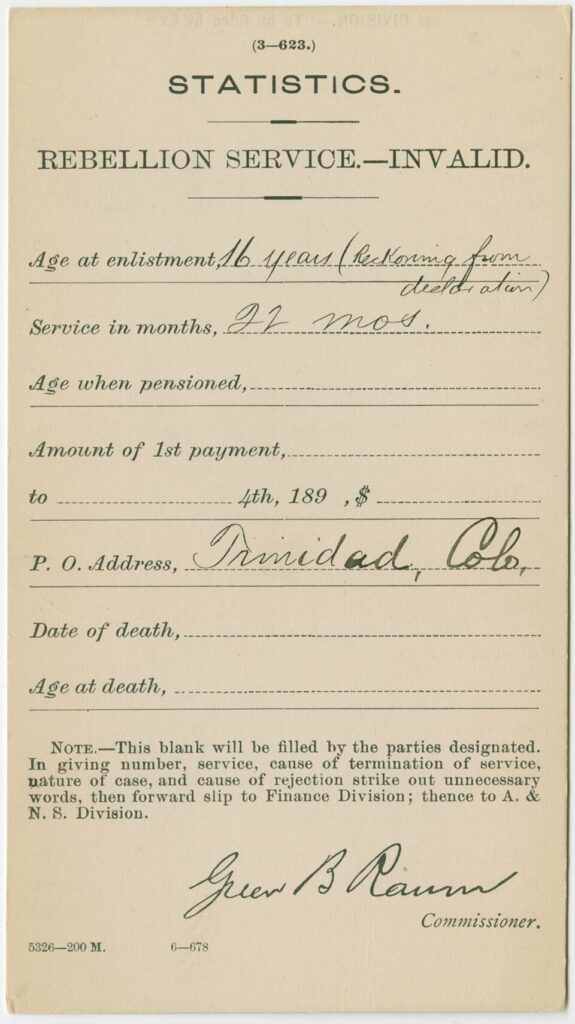 (3—623.)
STATISTICS.
REBELLION SERVICE.—INVALID.
Age at enlistment, 16 years (Reckoning from
declaration)
Service in months, 22 mos.
Age when pensioned,
Amount of 1st payment,
to 4th, 189 , $
P. O. Address, Trinidad, Colo,
Date of death,
Age at death,
NOTE.—This blank will be filled by the parties designated.
In giving number, service, cause of termination of service,
nature of case, and cause of rejection strike out unnecessary
words, then forward slip to Finance Division; thence to A. &
N. S. Division.
Green B Raum
Commissioner.
5326—200 M. 6—678